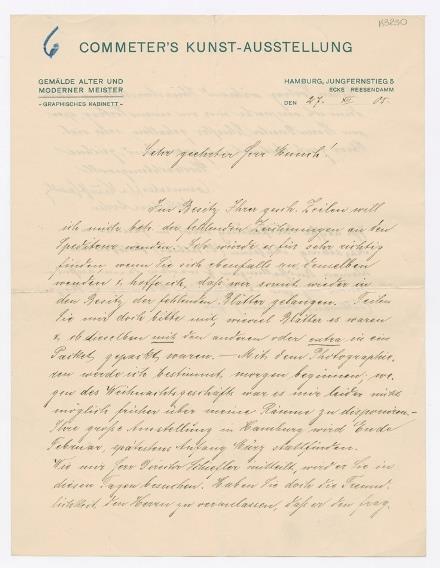 6
K3230
COMMETER'S KUNST-AUSSTELLUNG
GEMÄLDE ALTER UND
MODERNER MEISTER
- GRAPHISCHES KABINETT -
HAMBURG, JUNGFERNSTIEG 5
ECKE REESENDAMM
DEN 27. XII 05.
Sehr geehrter Herr Munch!
Im Besitz Ihrer gesch. Zeilen will
ich mich betr. der fehlenden Zeichnungen an den
Spediteur wenden. Ich würde es für sehr richtig
finden, wenn Sie sich ebenfalls an denselben
wenden & hoffe ich, dass wir somit wieder in
den Besitz der fehlenden Blätter gelangen. Teilen
Sie mir doch bitte mit, wieviel Blätter es waren
& ob dieselben mit den anderen oder extra in ein
Packet gepackt waren. - Mit dem Photographie-
ren werde ich bestimmt morgen beginnen; we-
gen des Weihnachtsgeschäfts war es mir leider nicht
möglich früher über meine Räume zu disponieren. -
Ihre große Ausstellung in Hamburg wird Ende
Februar, spätestens Anfang März stattfinden.
Wie mir Herr Direktor Schiefler mitteilt, wird er Sie in
diesen Tagen besuchen. Haben Sie doch die Freund-
lichkeit, den Herrn zu veranlassen, daß er den frag.